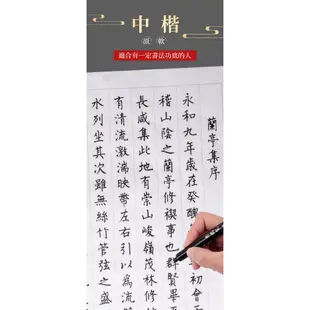 中楷
適合有一定書法功底的人
蘭亭集序
永和九年歲在癸醜 初會
稽山陰之蘭亭修禊事也群賢畢
長咸集此地有崇山峻嶺茂林修
有清流激湍映帶左右引以為流
水列坐其次雖無絲竹管弦之盛